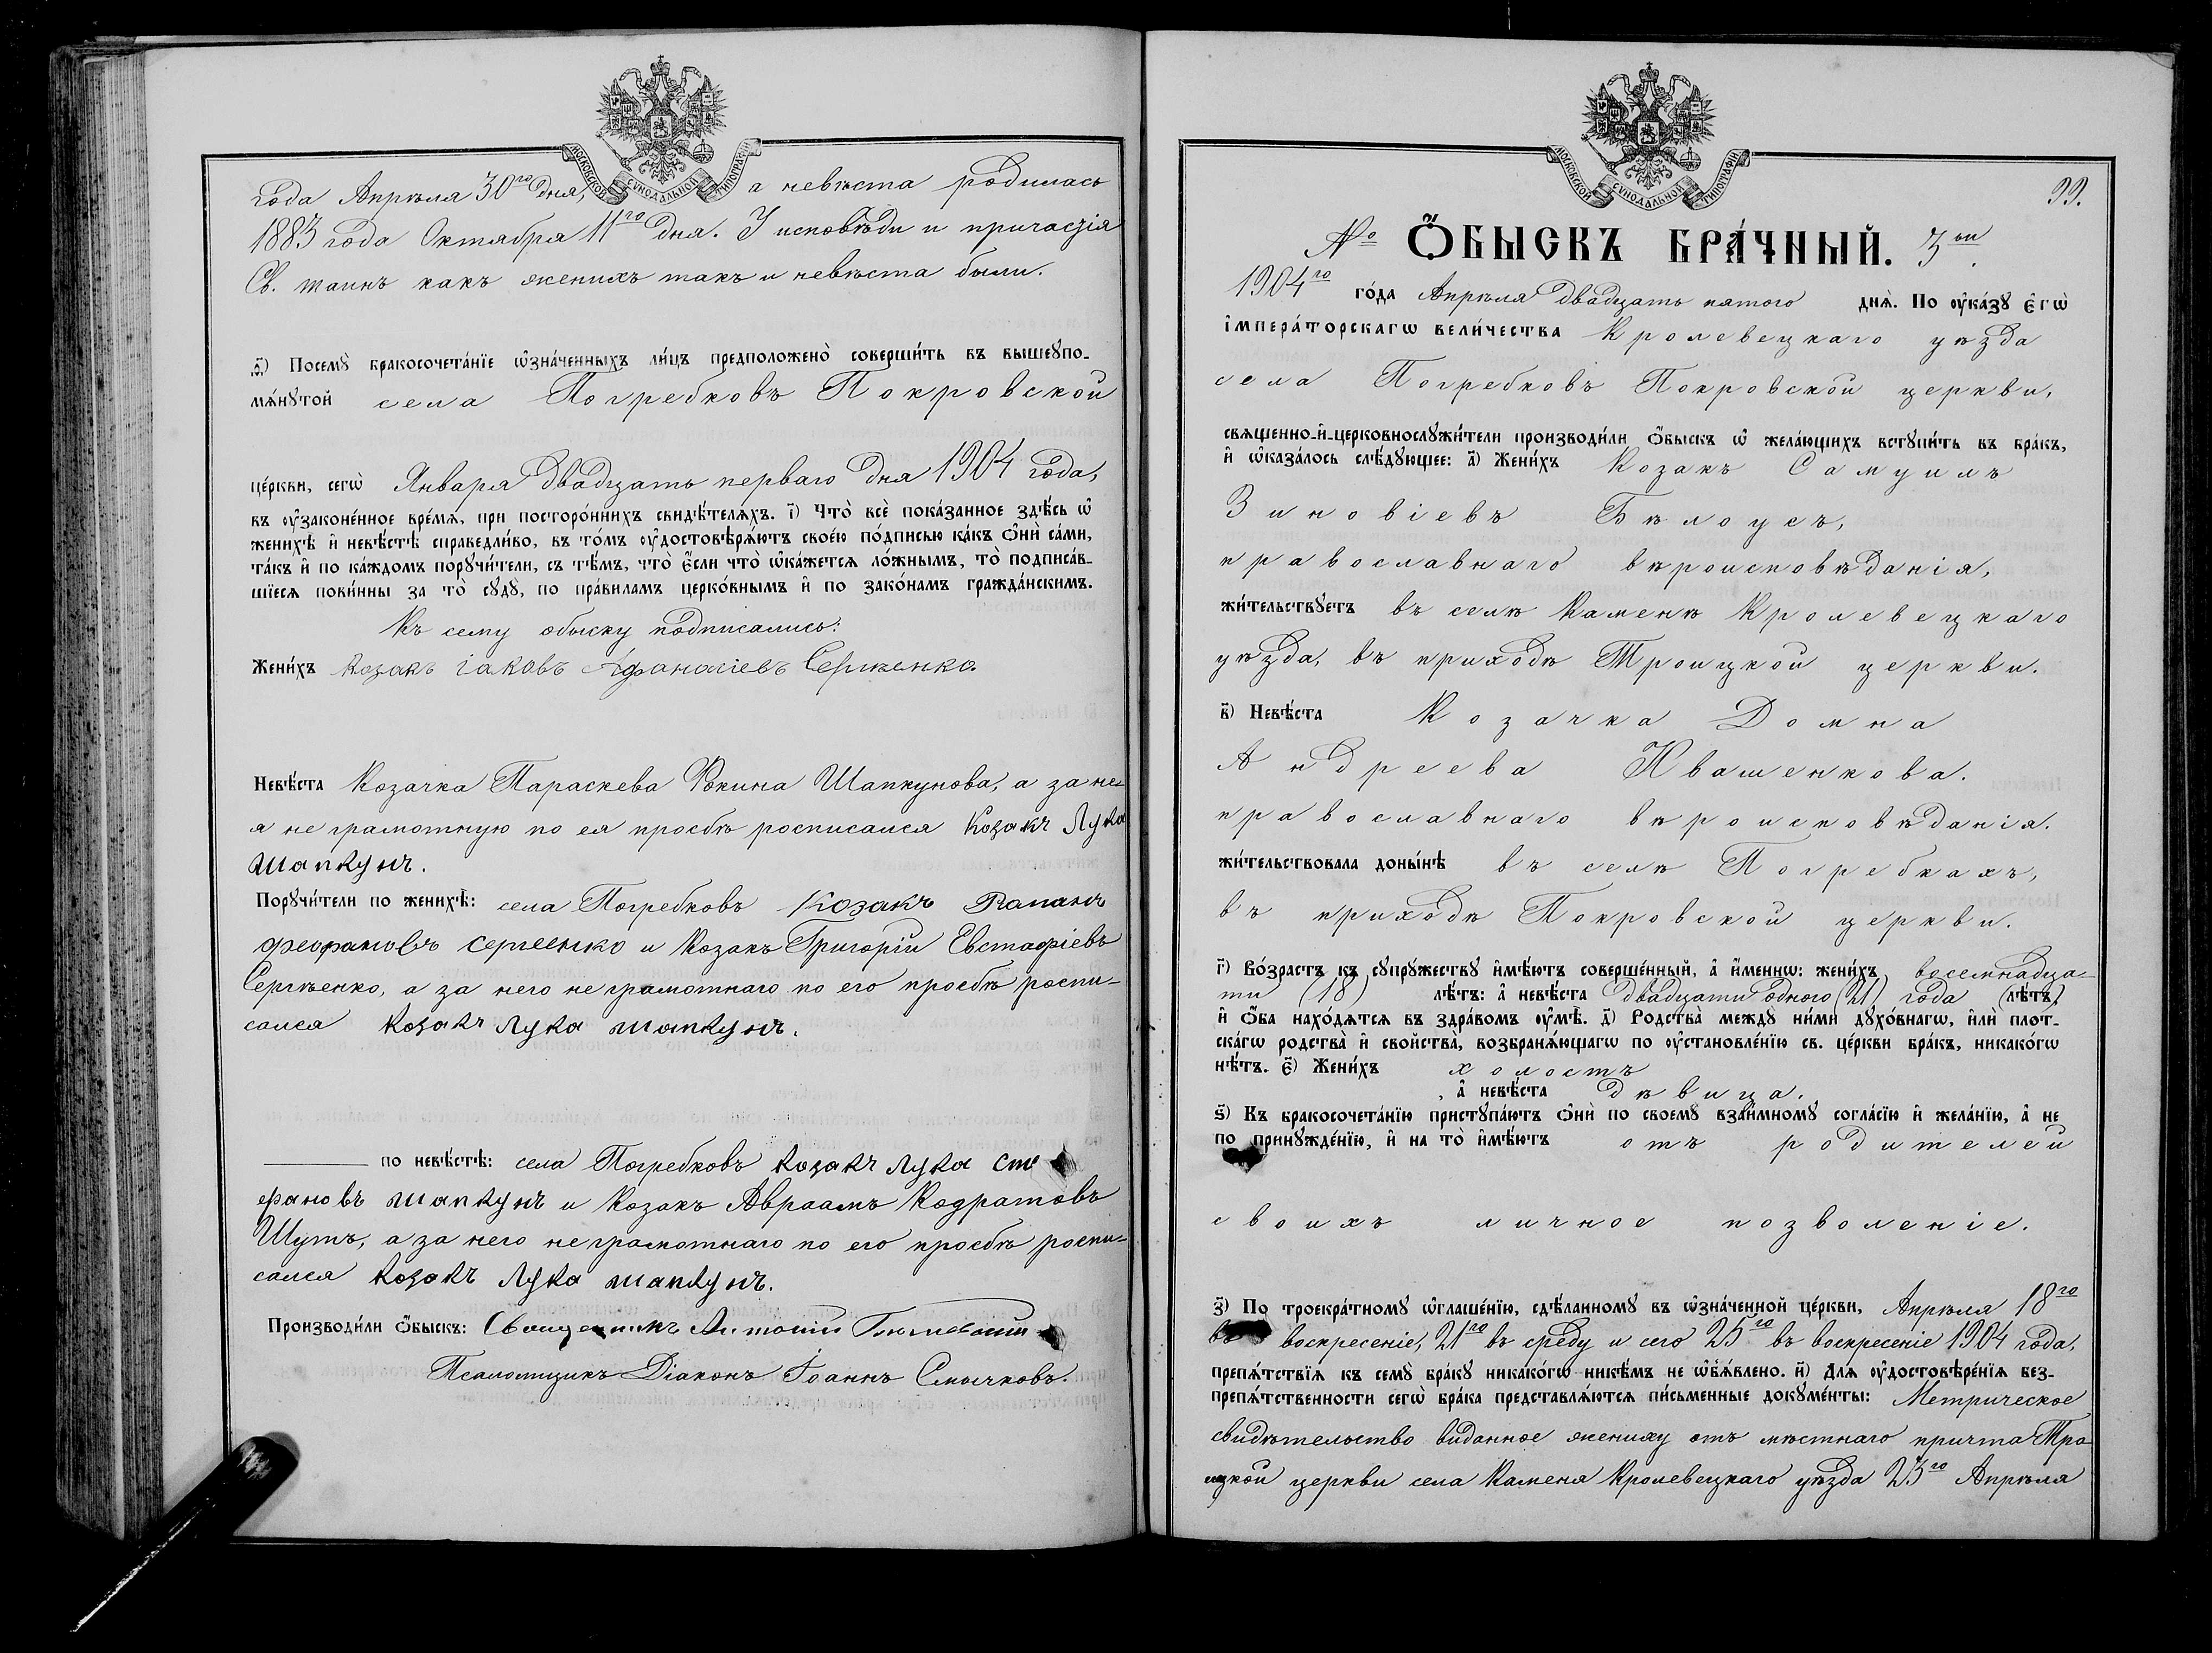 МОСКОВСКОЙ СѴНОДАЛЬНОЙ ТИПОГРАФІИ
года Апрѣля 30го дня, а невѣста родилась
1883 года Октября 11го дня. У исповѣди и причастія
Св. таинъ какъ женихъ такъ и невѣста были.
ѳ҃) Посемꙋ̀ бракосочета́нїе ѡ҆зна́ченныхъ ли́цъ предположено̀ соверши́ть въ вышеꙋпо-
мѧ́нꙋтой села Погребковъ Покровской
це́ркви, сегѡ̀ Января двадцать перваго дня 1904 года,
въ оу҆законе́нное вре́мѧ, при посторо́ннихъ свидѣ́телѧхъ. і҃) Что̀ всѐ пока́занное здѣ́сь ѡ҆
женихѣ̀ и҆ невѣ́стѣ справедли́во, въ то́мъ оу҆достовѣрѧ́ютъ свое́ю по́дписью ка́къ ѻ҆нѝ са́ми,
та́къ и҆ по ка́ждомъ порꙋчи́тели, съ тѣ́мъ, что̀ є҆́сли что̀ ѡ҆ка́жетсѧ ло́жнымъ, то̀ подписа́в-
шїесѧ пови́нны за то̀ сꙋдꙋ̀, по пра́виламъ церко́внымъ и҆ по зако́намъ гражда́нскимъ.
Къ сему обыску подписались:
Жени́хъ козакъ іаковъ Афанасіевъ Сергѣенко.
Невѣ́ста Козачка Параскева Фокина Шапкунова, а за не-
я не грамотную по ея просбѣ росписался Козакъ Лука
шапкунъ.
Порꙋчи́тели по женихѣ̀: села Погребковъ Козакъ Раманъ
феофановъ сергеенко и Козакъ Григорій Евстафіевъ
Сергѣенко, а за него не грамотнаго по его просбѣ роспи-
сался козакъ лука шапкунъ.
по невѣ́стѣ: села Погребковъ козакъ лука сте
фановъ шапкунъ и Козакъ Авраамъ Кодратовъ
Шутъ, а за него не грамотнаго по его просбѣ роспи-
сался козакъ лука шапкунъ.
Производи́ли ѻ҆́быскъ: Священникъ Антоній
Псаломщикъ Діаконъ Іоаннъ Смычковъ.
МОСКОВСКОЙ СѴНОДАЛЬНОЙ ТИПОГРАФІИ
99.
№ Ѻ҆́БЫСКЪ БРА́ЧНЫЙ. 3ій.
1904го го́да Апрѣля двадцать пятого днѧ̀. По оу҆ка́зꙋ є҆гѡ̀
і҆мпера́торскагѡ вели́чества Кролевецкаго уѣзда
села Погребковъ Покровской церкви,
свѧщенно-и҆-церковнослꙋжи́тели производи́ли ѻ҆́быскъ ѡ҆ жела́ющихъ встꙋпи́ть въ бра́къ,
и҆ ѡ҆каза́лось слѣ́дꙋющее: а҃) Жени́хъ Козакъ Самуилъ
Зиновіевъ Бѣлоусъ,
православнаго вѣроисповѣданія,
жи́тельствꙋетъ въ селѣ Каменѣ Кролевецкаго
уѣзда, въ приходѣ Троицкой церкви.
в҃) Невѣ́ста Козачка Домна
Андреева Квашенкова.
православнаго вѣроисповѣданія.
жи́тельствовала доны́нѣ въ селѣ Погребкахъ,
въ приходѣ Покровской церкви.
г҃) Во́зрастъ къ сꙋпрꙋ́жествꙋ и҆мѣ́ютъ соверше́нный, а҆ и҆́меннѡ: жени́хъ восемнадца-
ти (18) лѣ́тъ: а҆ невѣ́ста двадцати одного (21) года (лѣ́тъ)
и҆ ѻ҆́ба нахо́дѧтсѧ въ здра́вомъ оу҆мѣ̀. д҃) Родства̀ междꙋ̀ ни́ми дꙋхо́внагѡ, и҆лѝ плот-
ска́гѡ родства̀ и҆ свойства̀, возбранѧ́ющагѡ по оу҆становле́нїю св. це́ркви бра́къ, никако́гѡ
нѣ́тъ. є҃) Жени́хъ холостъ
, а҆ невѣ́ста дѣвица.
ѕ҃) Къ бракосочета́нїю пристꙋпа́ютъ ѻ҆нѝ по своемꙋ̀ взаи́мномꙋ согла́сїю и҆ жела́нїю, а҆ не
по принꙋжде́нїю, и҆ на то̀ и҆мѣ́ютъ отъ родителей
своихъ личное позволеніе.
з҃) По троекра́тномꙋ ѡ҆глаше́нїю, сдѣ́ланномꙋ въ ѡ҆зна́ченной це́ркви, Апрѣля 18го
въ воскресеніе, 21го въ среду и сего 25го въ воскресеніе 1904 года,
препѧ́тствїѧ къ семꙋ̀ бра́кꙋ никако́гѡ никѣ́мъ не ѡ҆б̾ѧ́влено. и҃) Длѧ̀ оу҆достовѣре́нїѧ без-
препѧ́тственности сегѡ̀ бра́ка представлѧ́ютсѧ пи́сьменные докꙋме́нты: Метрическое
свидѣтельство виданное жениху отъ мѣстнаго причта Тро
ицкой церкви села Каменя Кролевецкаго уѣзда 23го Апрѣля